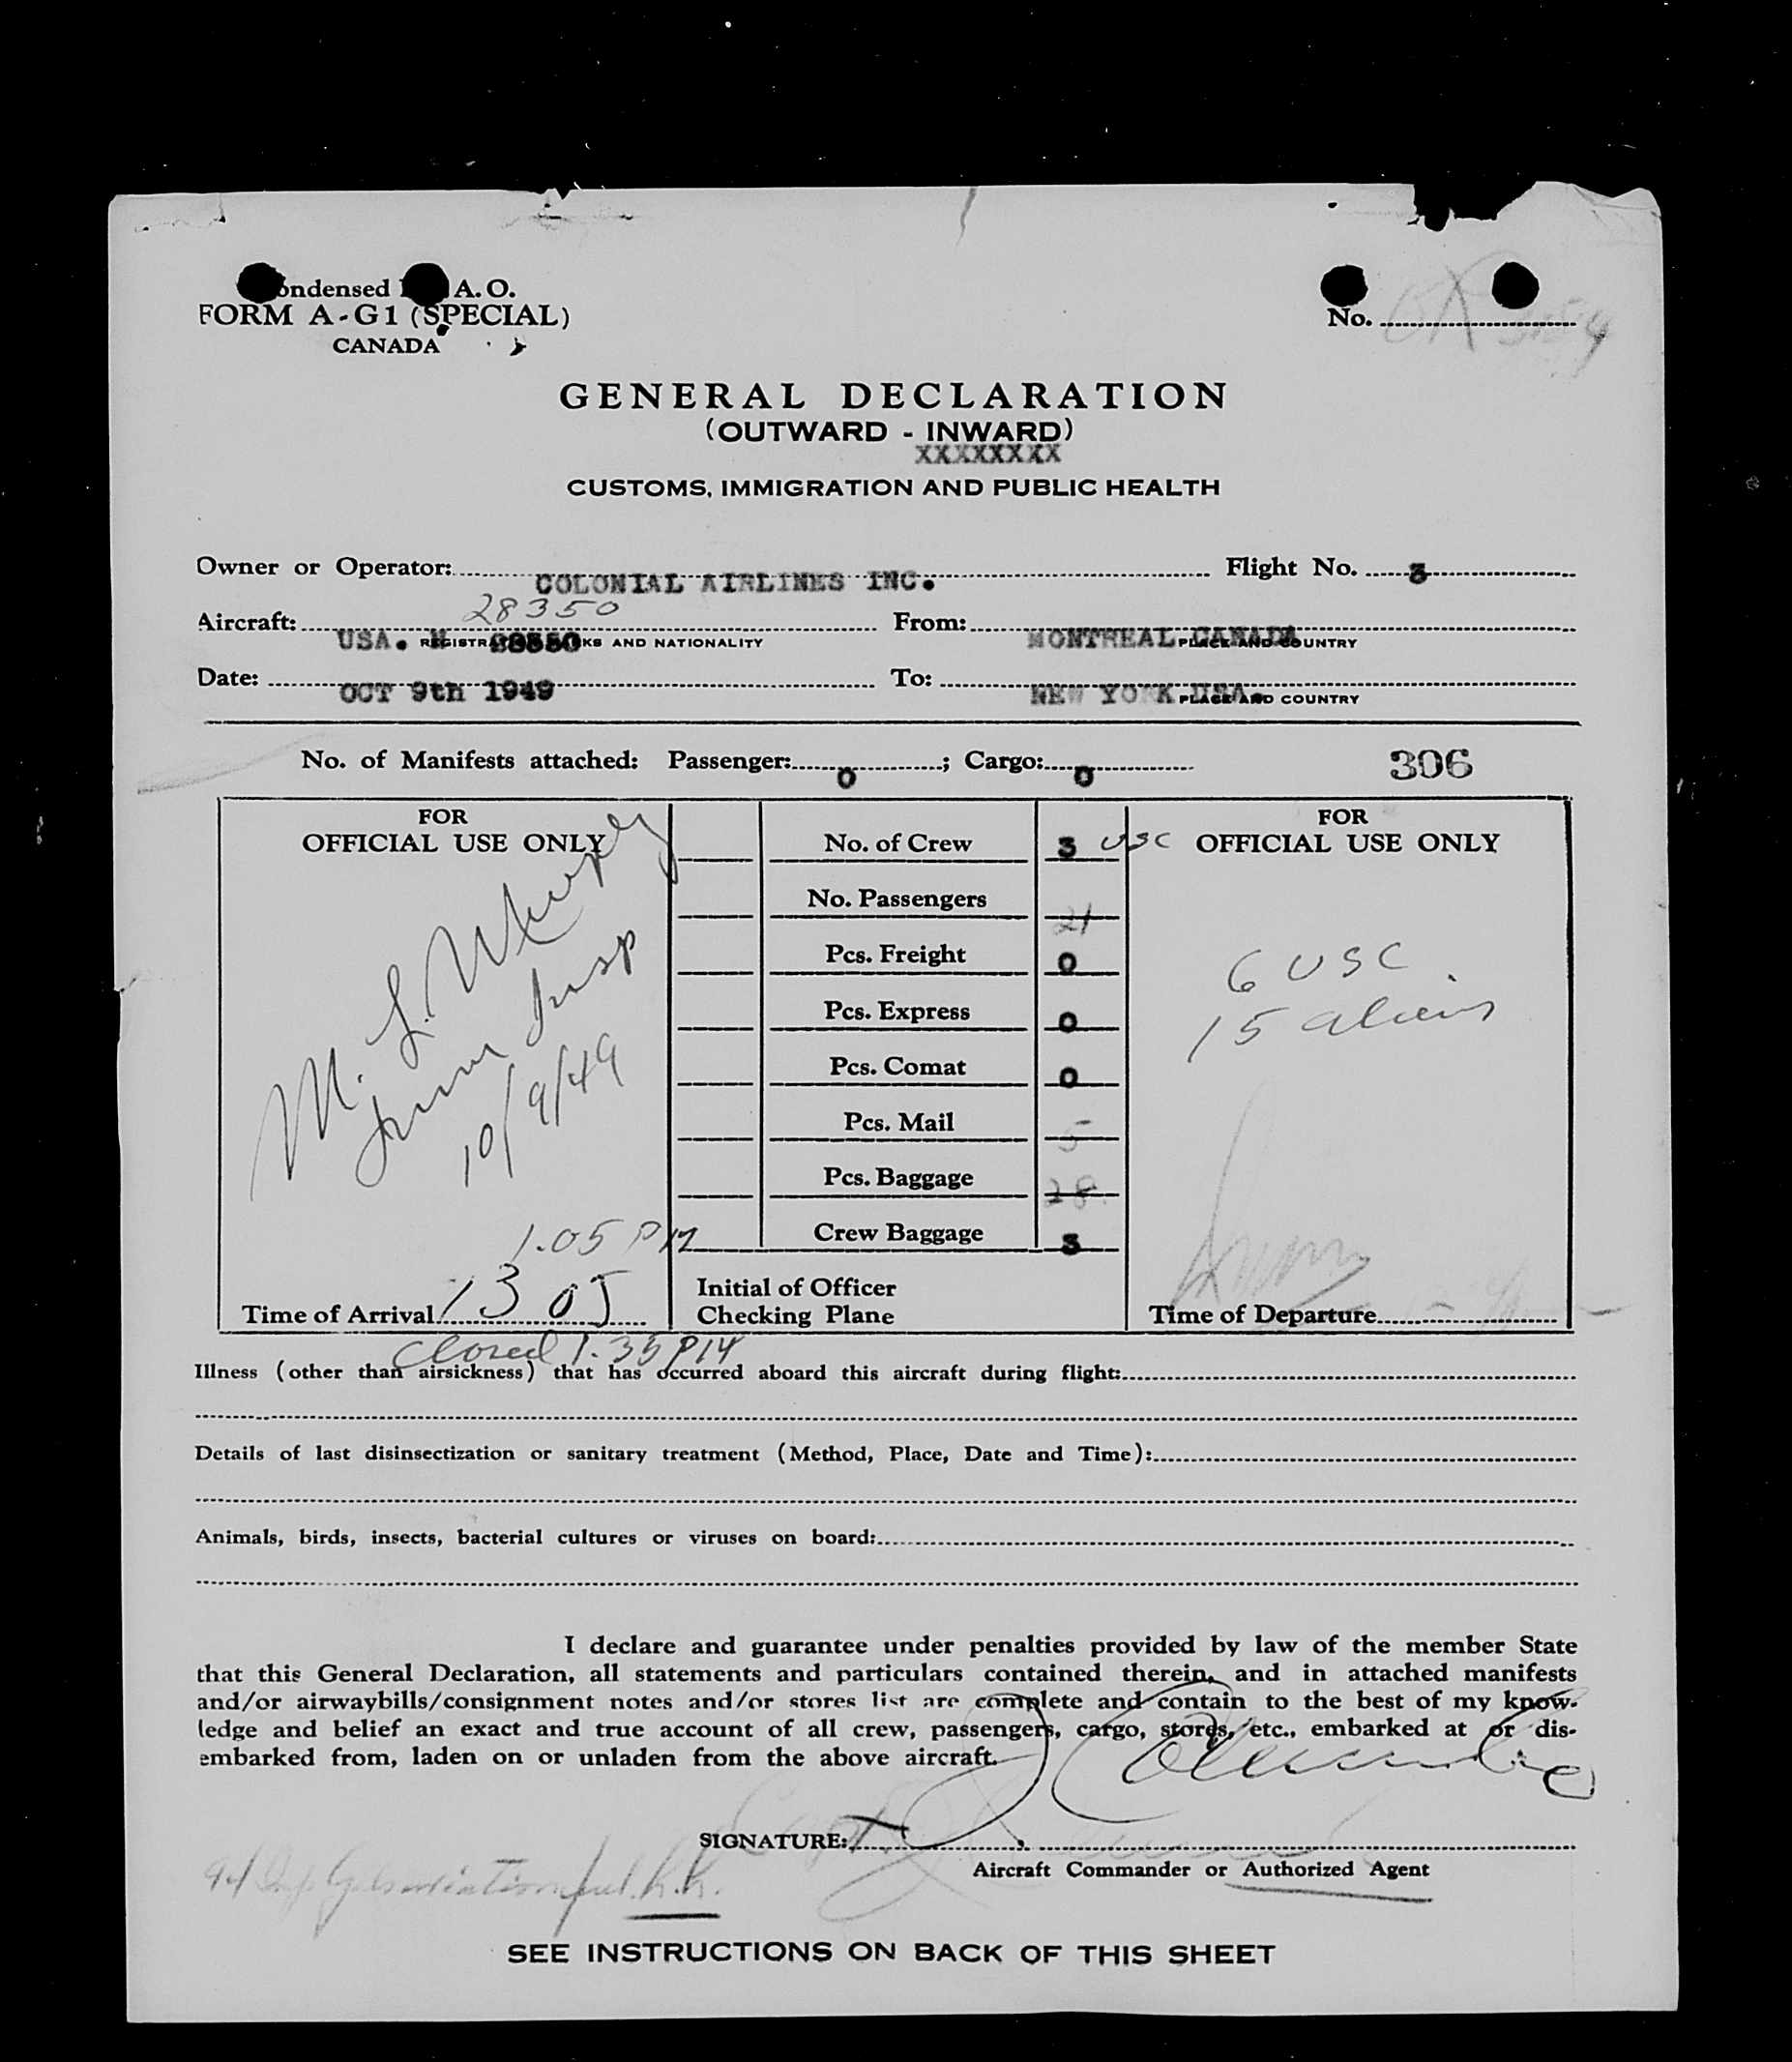 ondensed A.O.
FORM A-G1 (SPECIAL)
CANADA
No.
GENERAL DECLARATION
(OUTWARD - INWARD)
XXXXXXXX
CUSTOMS, IMMIGRATION AND PUBLIC HEALTH
Owner or Operator: COLONIAL AIRLINES INC. Flight No. 3
28350
Aircraft: USA. N From: MONTREAL CANADA
AND NATIONALITY PLACE AND COUNTRY
Date: OCT 9th 1949 To: NEW YORK USA.
PLACE AND COUNTRY
No. of Manifests attached: Passenger: 0 ; Cargo: 0 306
FOR
OFFICIAL USE ONLY
M. L.
Imm Insp
10/9/49
1.05 PM
Time of Arrival 1305
No. of Crew 3 USC
No. Passengers 21
Pcs. Freight 0
Pcs. Express 0
Pcs. Comat 0
Pcs. Mail 5
Pcs. Baggage 28
Crew Baggage 3
Initial of Officer
Checking Plane
FOR
OFFICIAL USE ONLY
6 USC
15 aliens
Time of Departure
closed 1.35 PM
Illness (other than airsickness) that has occurred aboard this aircraft during flight:
Details of last disinsectization or sanitary treatment (Method, Place, Date and Time):
Animals, birds, insects, bacterial cultures or viruses on board:
I declare and guarantee under penalties provided by law of the member State
that this General Declaration, all statements and particulars contained therein, and in attached manifests
and/or airwaybills/consignment notes and/or stores list are complete and contain to the best of my know-
ledge and belief an exact and true account of all crew, passengers, cargo, stores, etc., embarked at or dis-
embarked from, laden on or unladen from the above aircraft.
SIGNATURE:
Aircraft Commander or Authorized Agent
SEE INSTRUCTIONS ON BACK OF THIS SHEET